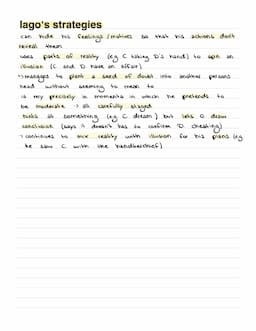 Iago's strategies
can hide his feelings/motives so that his actions don't
reveal them
uses parts of reality (eg C taking D's hand) to spin an
illusion (C and D have an affair)
→ manages to plant a seed of doubt into another persons
head without seeming to mean to
is very precisely in moments in which he pretends to
be moderate → all carefully staged
hints at something (eg C dream) but lets O draw
conclusion (says it doesn't has to confirm D cheating)
→ continues to mix reality with illusion for his plans (eg
he saw C with the handkerchief)